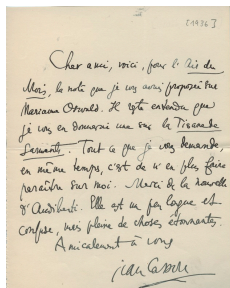 [1936]
Cher ami, voici, pour le Air du
Mois, la note que je vous avais proposée sur
Marianne Oswald. Il reste entendu que
je vous en donnerai une sur la Tisane de
Sarments. Tout ce que je vous demande,
en même temps, c'est de n'en plus faire
paraître sur moi. Merci de la nouvelle
d'Audiberti. Elle est un peu longue et
confuse, mais pleine de choses étonnantes.
Amicalement à vous
Jean Cassou